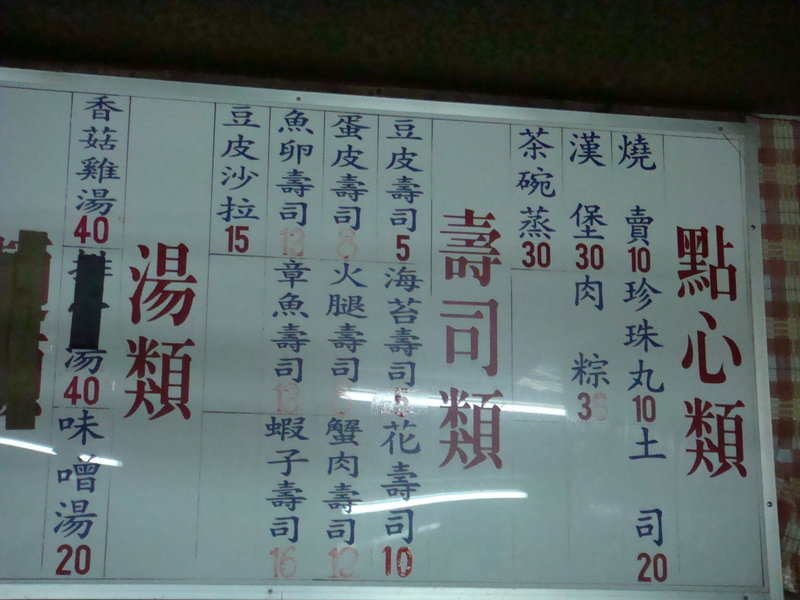 點心類
燒賣 10
珍珠丸 10
土司 20
漢堡 30
肉粽 3
茶碗蒸 30
壽司類
豆皮壽司 5
海苔壽司
花壽司 10
蛋皮壽司 8
火腿壽司
蟹肉壽司
魚卵壽司
章魚壽司
蝦子壽司 16
豆皮沙拉 15
湯類
香菇雞湯 40
湯 40
味噌湯 20